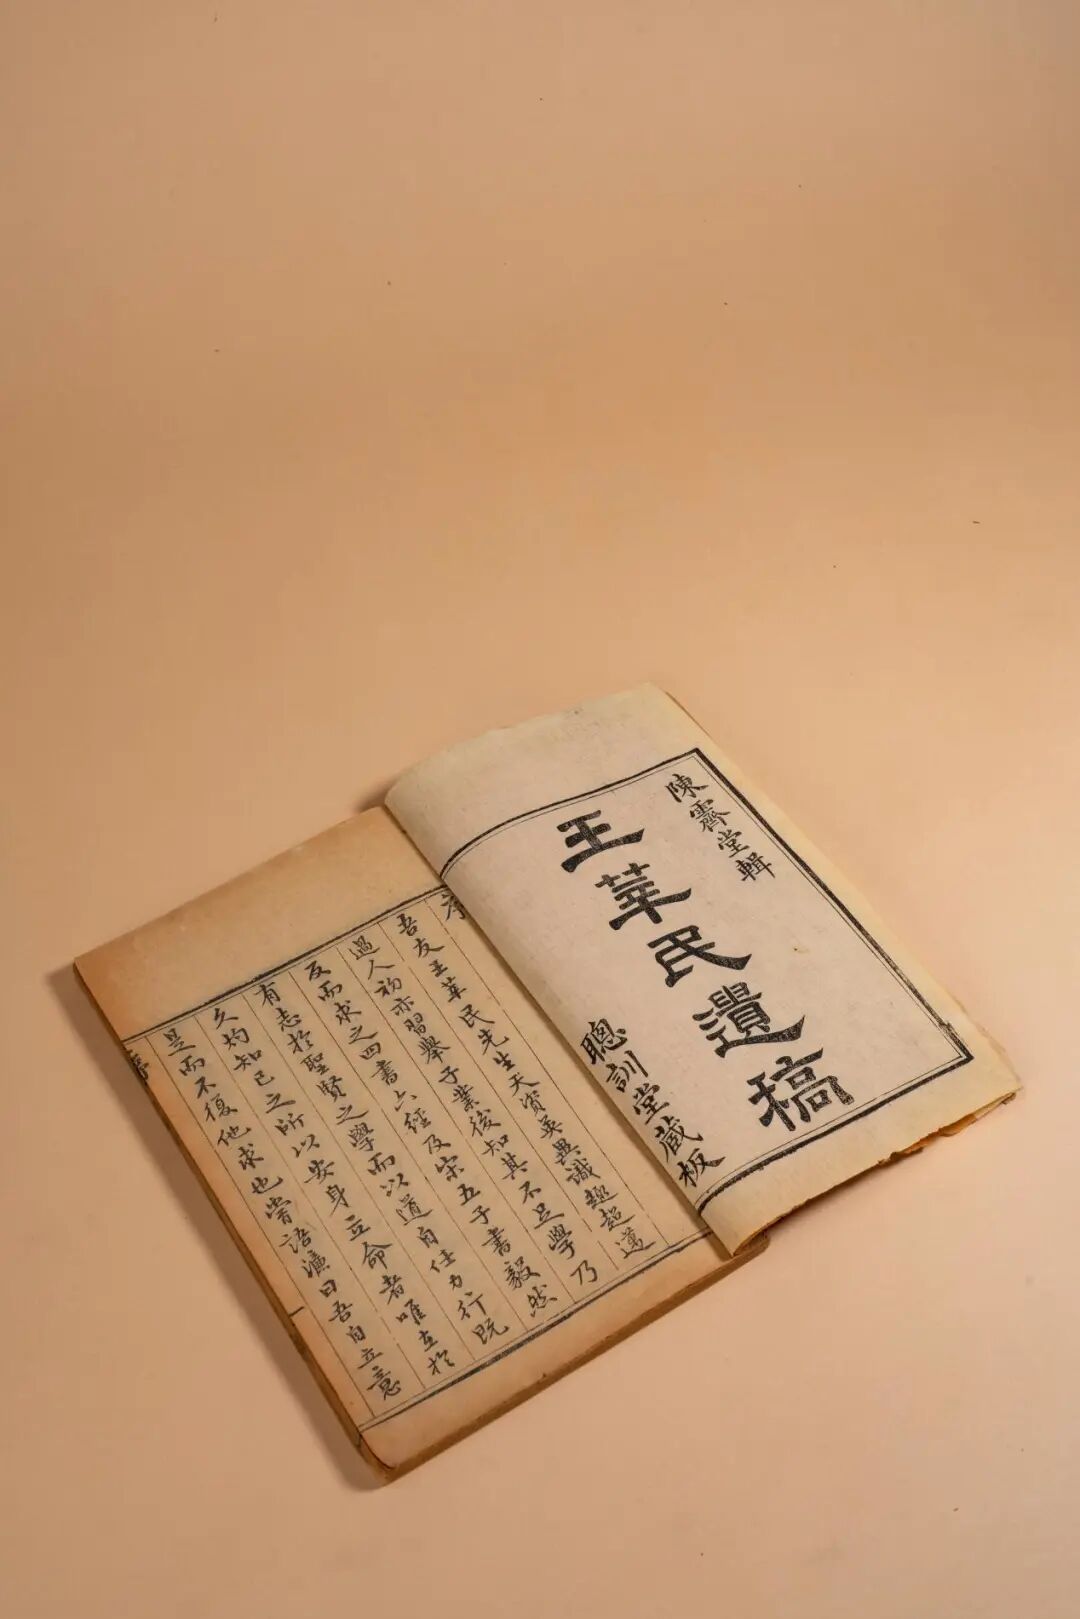 陳霽堂輯
王莘民遺稿
聰訓堂藏板
序
吾友王莘民先生天資英異識趣超邁
過人初亦習舉子業後知其不足學乃
反而求之四書六經及宋五子書毅然
有志於聖賢之學而以道自任力行既
久灼知己之所以安身立命者唯在於
是而不復他求也嘗語濂曰吾自立意